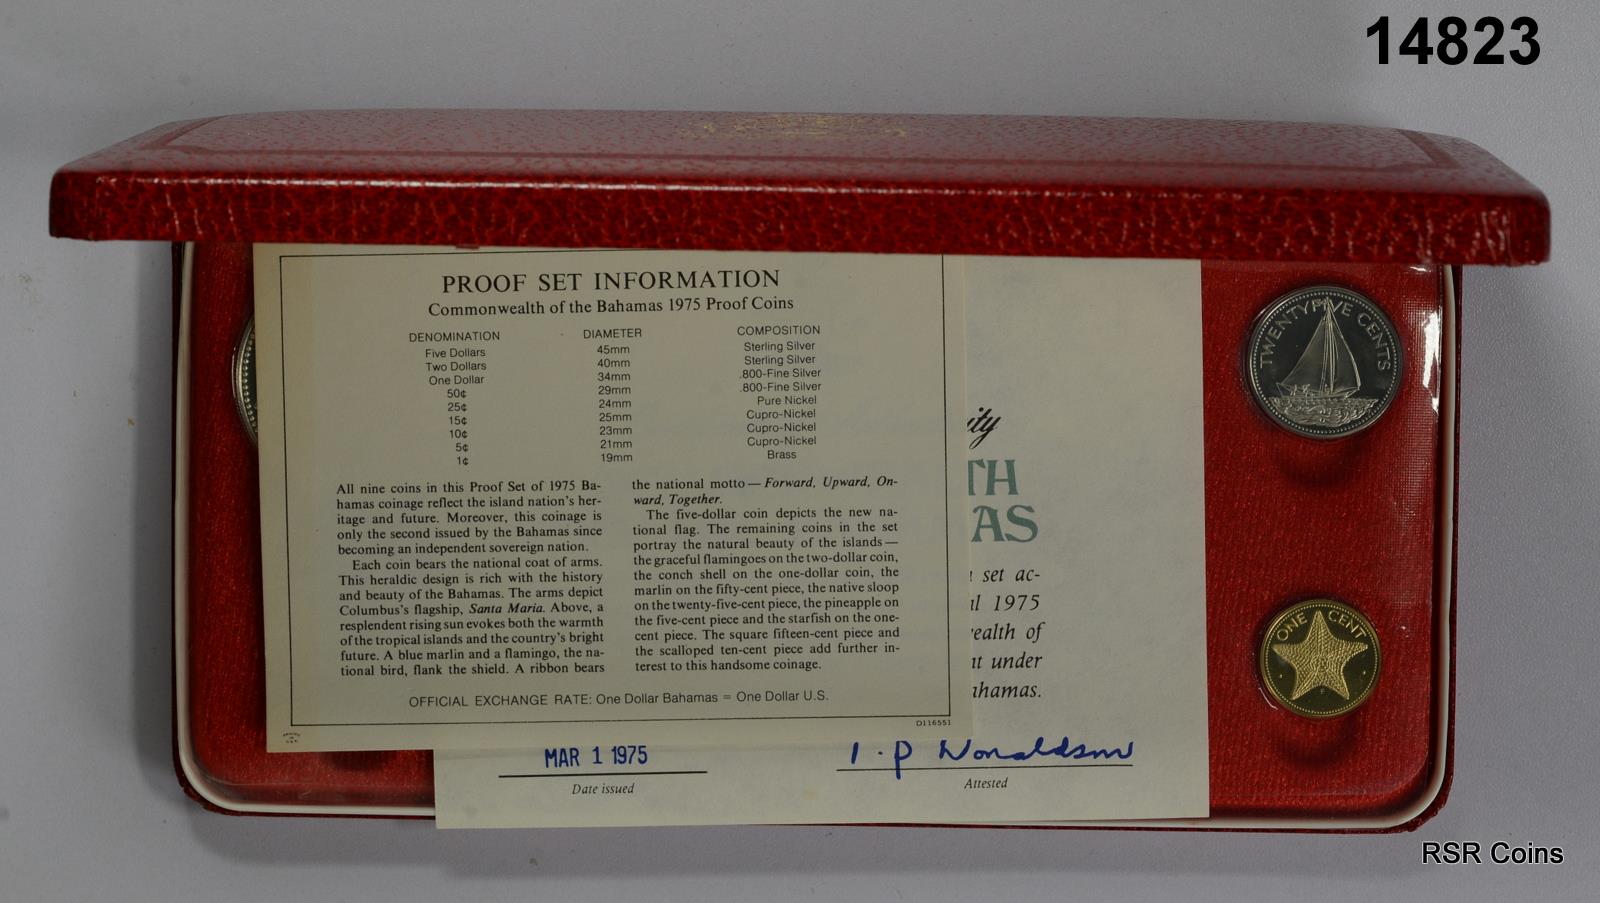 14823
PROOF SET INFORMATION
Commonwealth of the Bahamas 1975 Proof Coins
DENOMINATION DIAMETER COMPOSITION
Five Dollars 45mm Sterling Silver
Two Dollars 40mm Sterling Silver
One Dollar 34mm .800-Fine Silver
50¢ 29mm .800-Fine Silver
25¢ 24mm Pure Nickel
15¢ 25mm Cupro-Nickel
10¢ 23mm Cupro-Nickel
5¢ 21mm Cupro-Nickel
1¢ 19mm Brass
All nine coins in this Proof Set of 1975 Ba-
hamas coinage reflect the island nation's her-
itage and future. Moreover, this coinage is
only the second issued by the Bahamas since
becoming an independent sovereign nation.
Each coin bears the national coat of arms.
This heraldic design is rich with the history
and beauty of the Bahamas. The arms depict
Columbus's flagship, Santa Maria. Above, a
resplendent rising sun evokes both the warmth
of the tropical islands and the country's bright
future. A blue marlin and a flamingo, the na-
tional bird, flank the shield. A ribbon bears
the national motto — Forward, Upward, On-
ward, Together.
The five-dollar coin depicts the new na-
tional flag. The remaining coins in the set
portray the natural beauty of the islands —
the graceful flamingoes on the two-dollar coin,
the conch shell on the one-dollar coin, the
marlin on the fifty-cent piece, the native sloop
on the twenty-five-cent piece, the pineapple on
the five-cent piece and the starfish on the one-
cent piece. The square fifteen-cent piece and
the scalloped ten-cent piece add further in-
terest to this handsome coinage.
OFFICIAL EXCHANGE RATE: One Dollar Bahamas = One Dollar U.S.
D116551
ity
TH
AS
set ac-
al 1975
ealth of
at under
ahamas.
MAR 1 1975
Date issued
T. P Donaldson
Attested
TWENTY FIVE CENTS
ONE CENT
RSR Coins